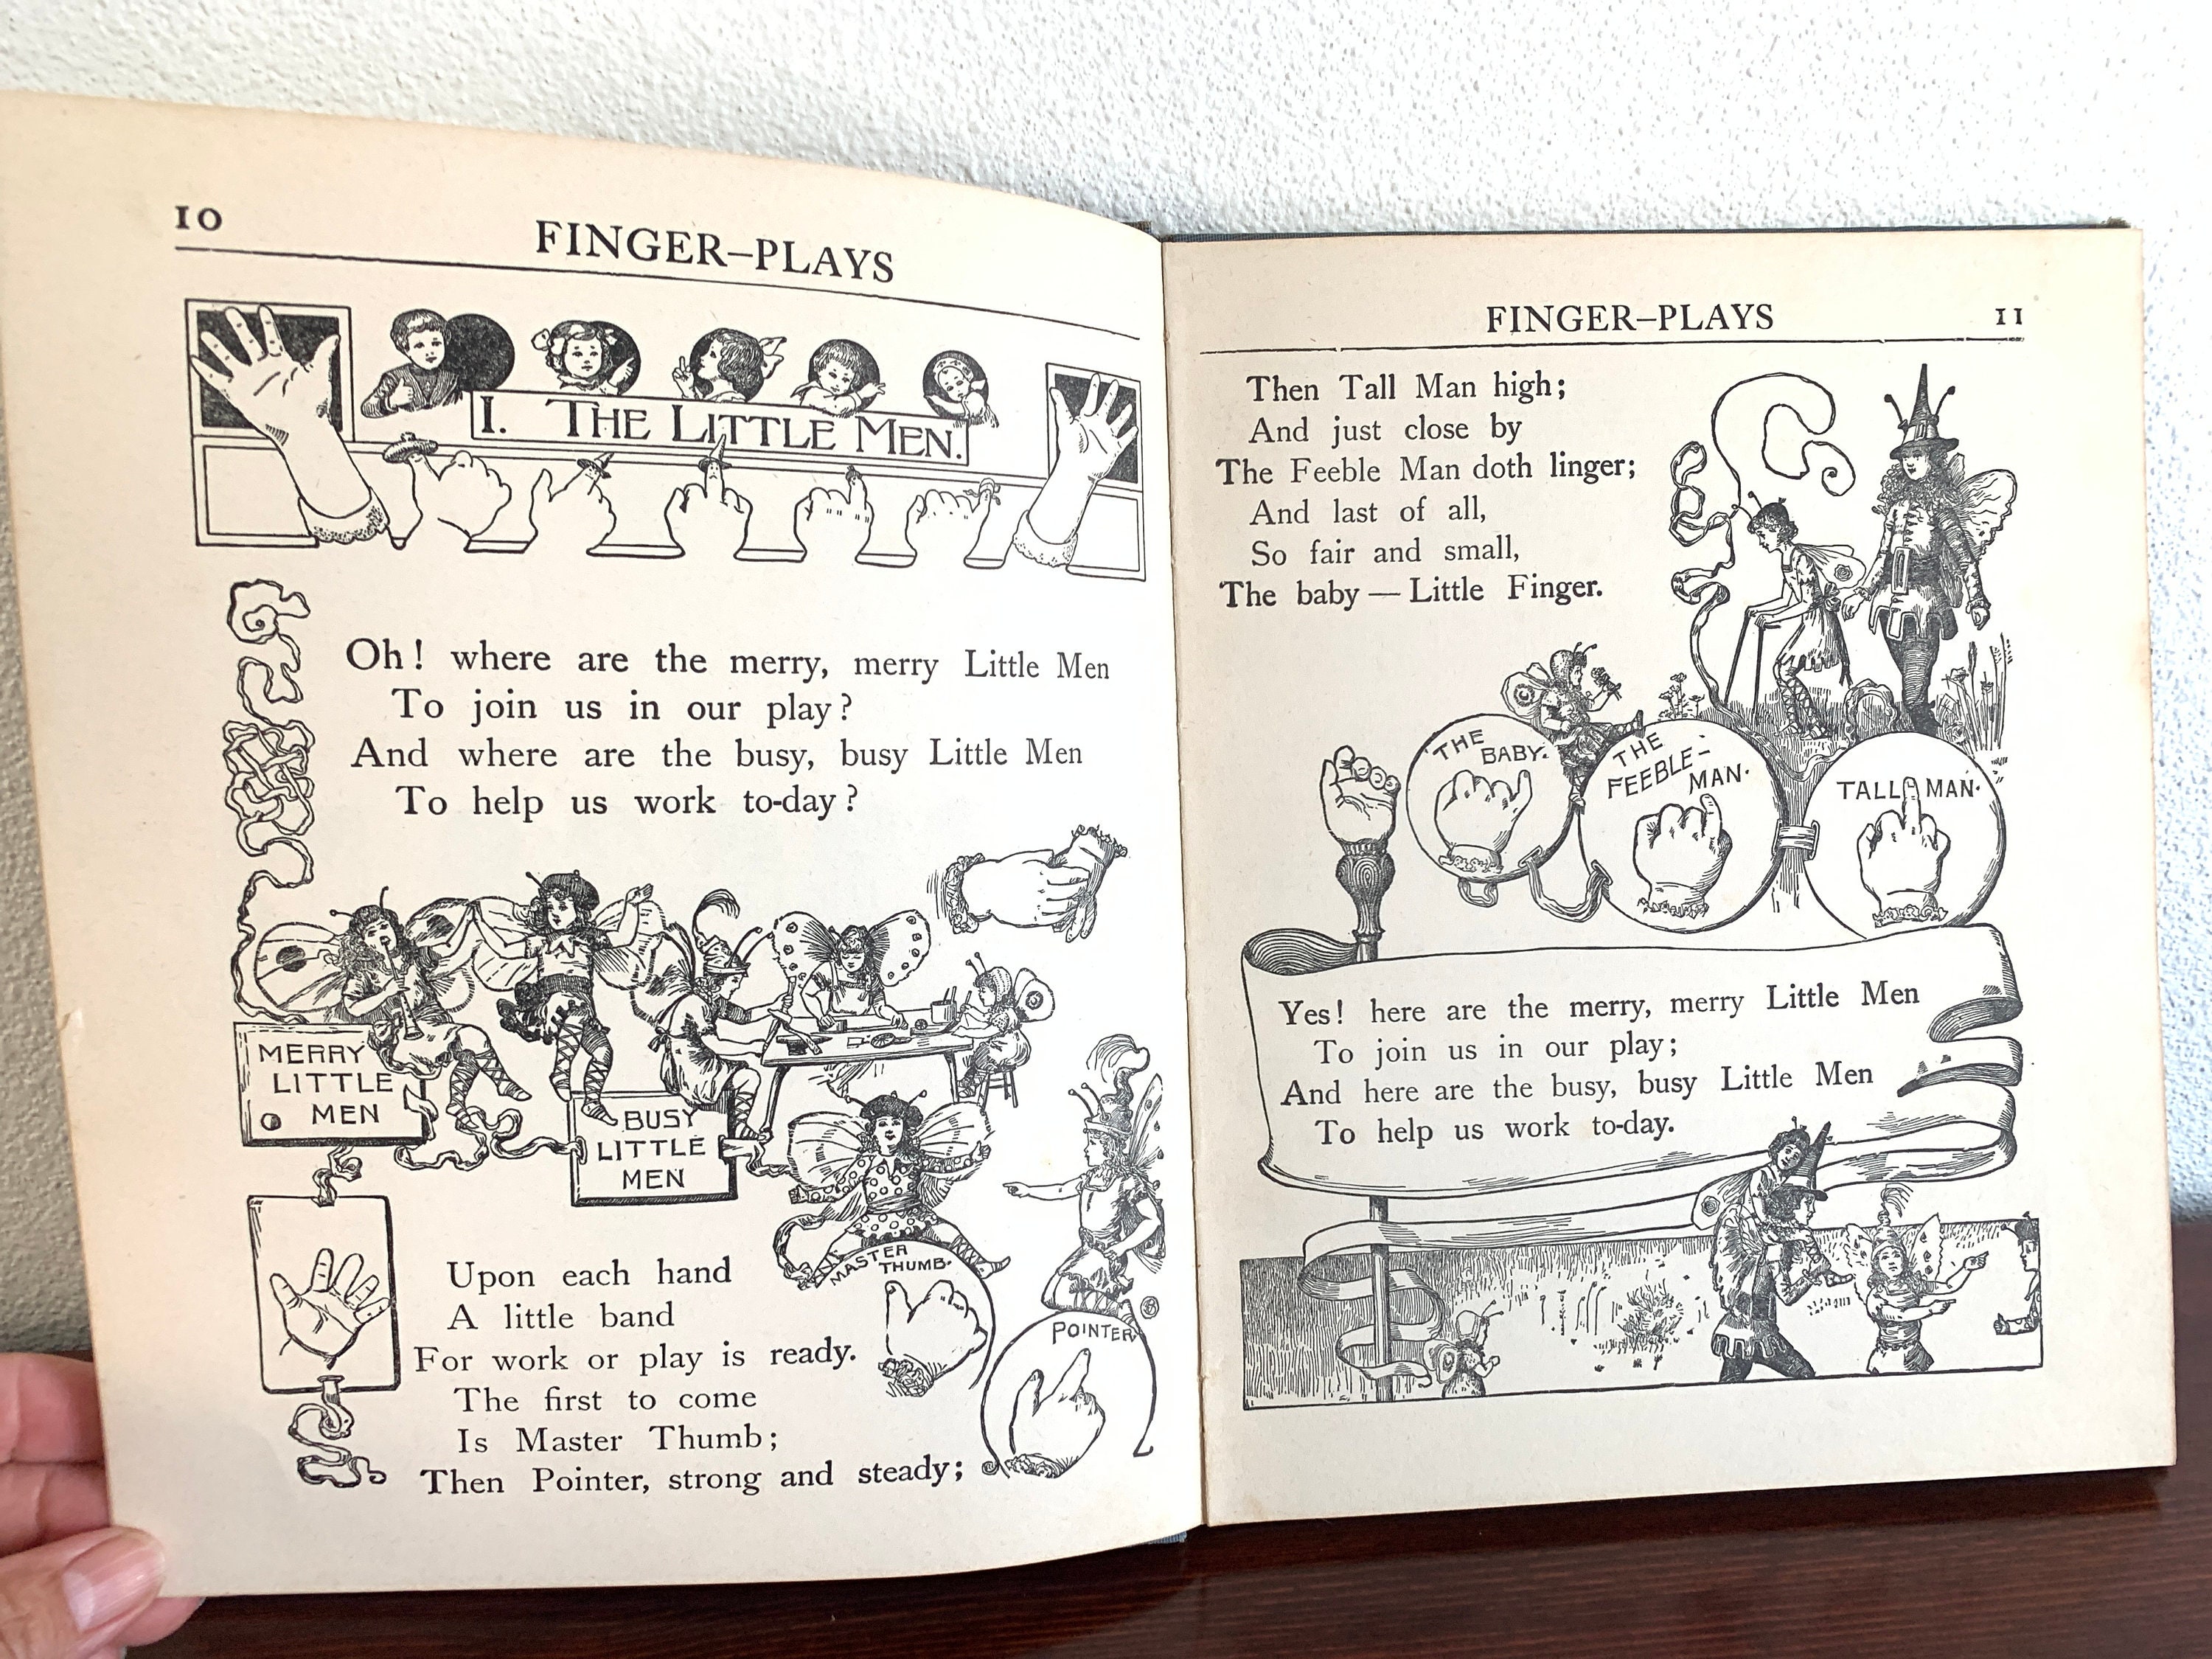 10
FINGER–PLAYS
I. THE LITTLE MEN.
Oh! where are the merry, merry Little Men
To join us in our play?
And where are the busy, busy Little Men
To help us work to-day?
MERRY
LITTLE
MEN
BUSY
LITTLE
MEN
MASTER
THUMB.
POINTER
Upon each hand
A little band
For work or play is ready.
The first to come
Is Master Thumb;
Then Pointer, strong and steady;
FINGER–PLAYS 11
Then Tall Man high;
And just close by
The Feeble Man doth linger;
And last of all,
So fair and small,
The baby — Little Finger.
THE
BABY.
THE
FEEBLE-
MAN.
TALL MAN.
Yes! here are the merry, merry Little Men
To join us in our play;
And here are the busy, busy Little Men
To help us work to-day.